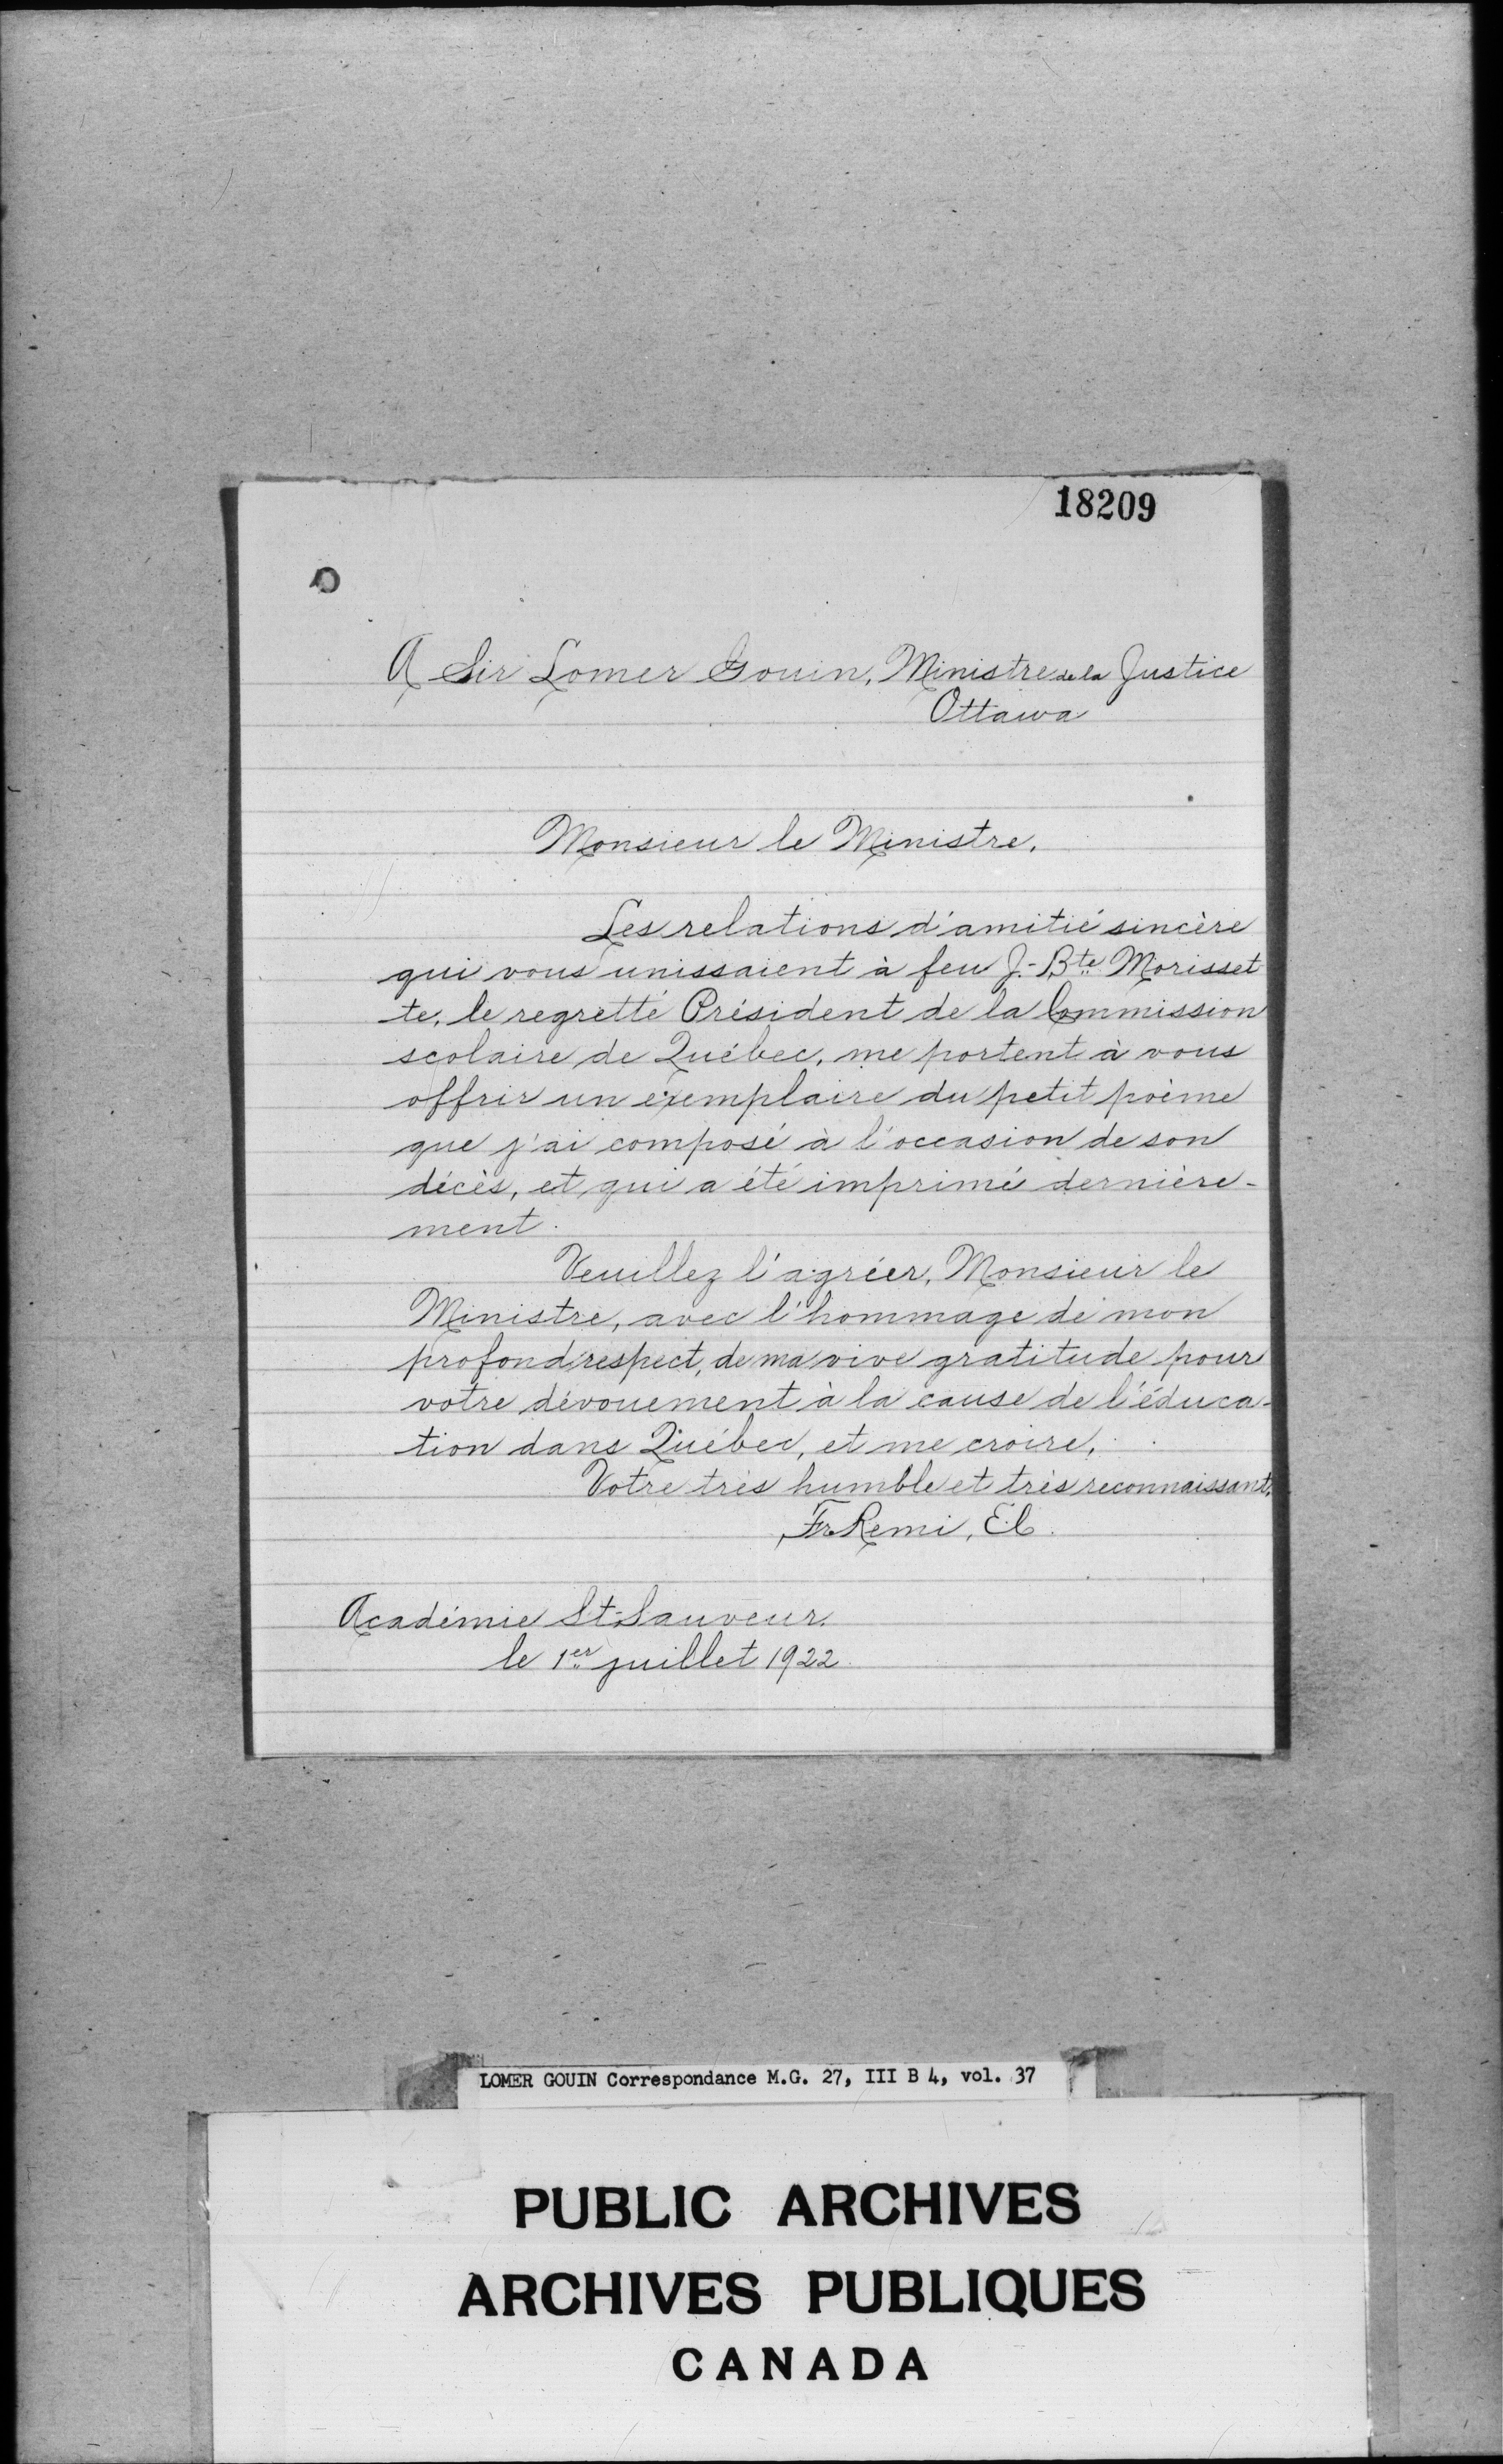 18209
A Sir Lomer Gouin, Ministre de la Justice
Ottawa
Monsieur le Ministre,
Les relations d'amitié sincère
qui vous unissaient à feu J.-Bte Morisset
te, le regretté Président de la Commission
scolaire de Québec, me portent à vous
offrir un exemplaire du petit poème
que j'ai composé à l'occasion de son
décès, et qui a été imprimé dernière-
ment.
Veuillez l'agréer, Monsieur le
Ministre, avec l'hommage de mon
profond respect, de ma vive gratitude pour
votre dévouement à la cause de l'éduca-
tion dans Québec, et me croire,
Votre très humble et très reconnaissant,
Fr. Remi, E.C.
Académie St-Sauveur,
le 1er juillet 1922
LOMER GOUIN Correspondance M.G. 27, III B 4, vol. 37
PUBLIC ARCHIVES
ARCHIVES PUBLIQUES
CANADA